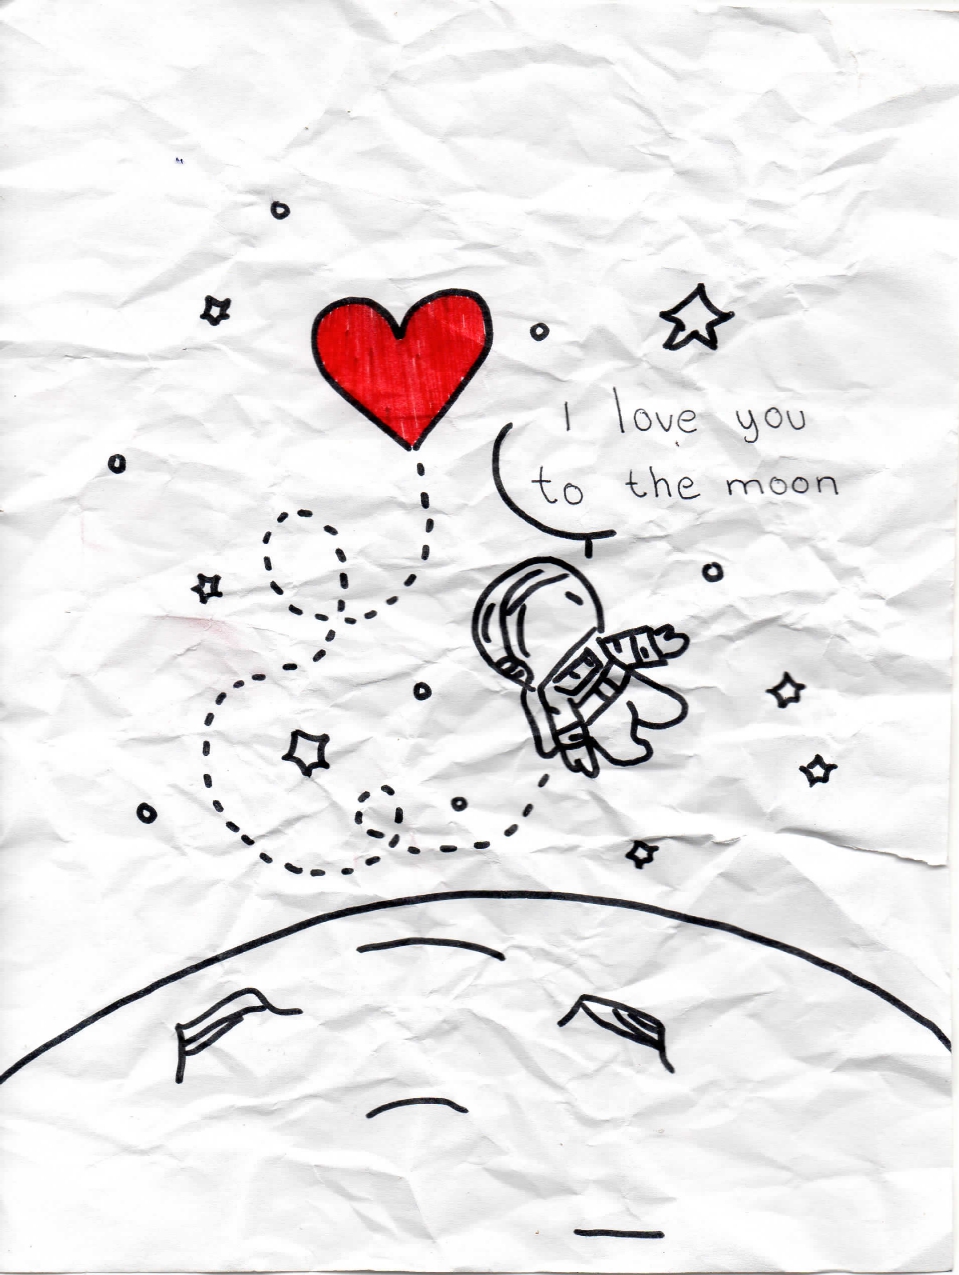 I love you
to the moon